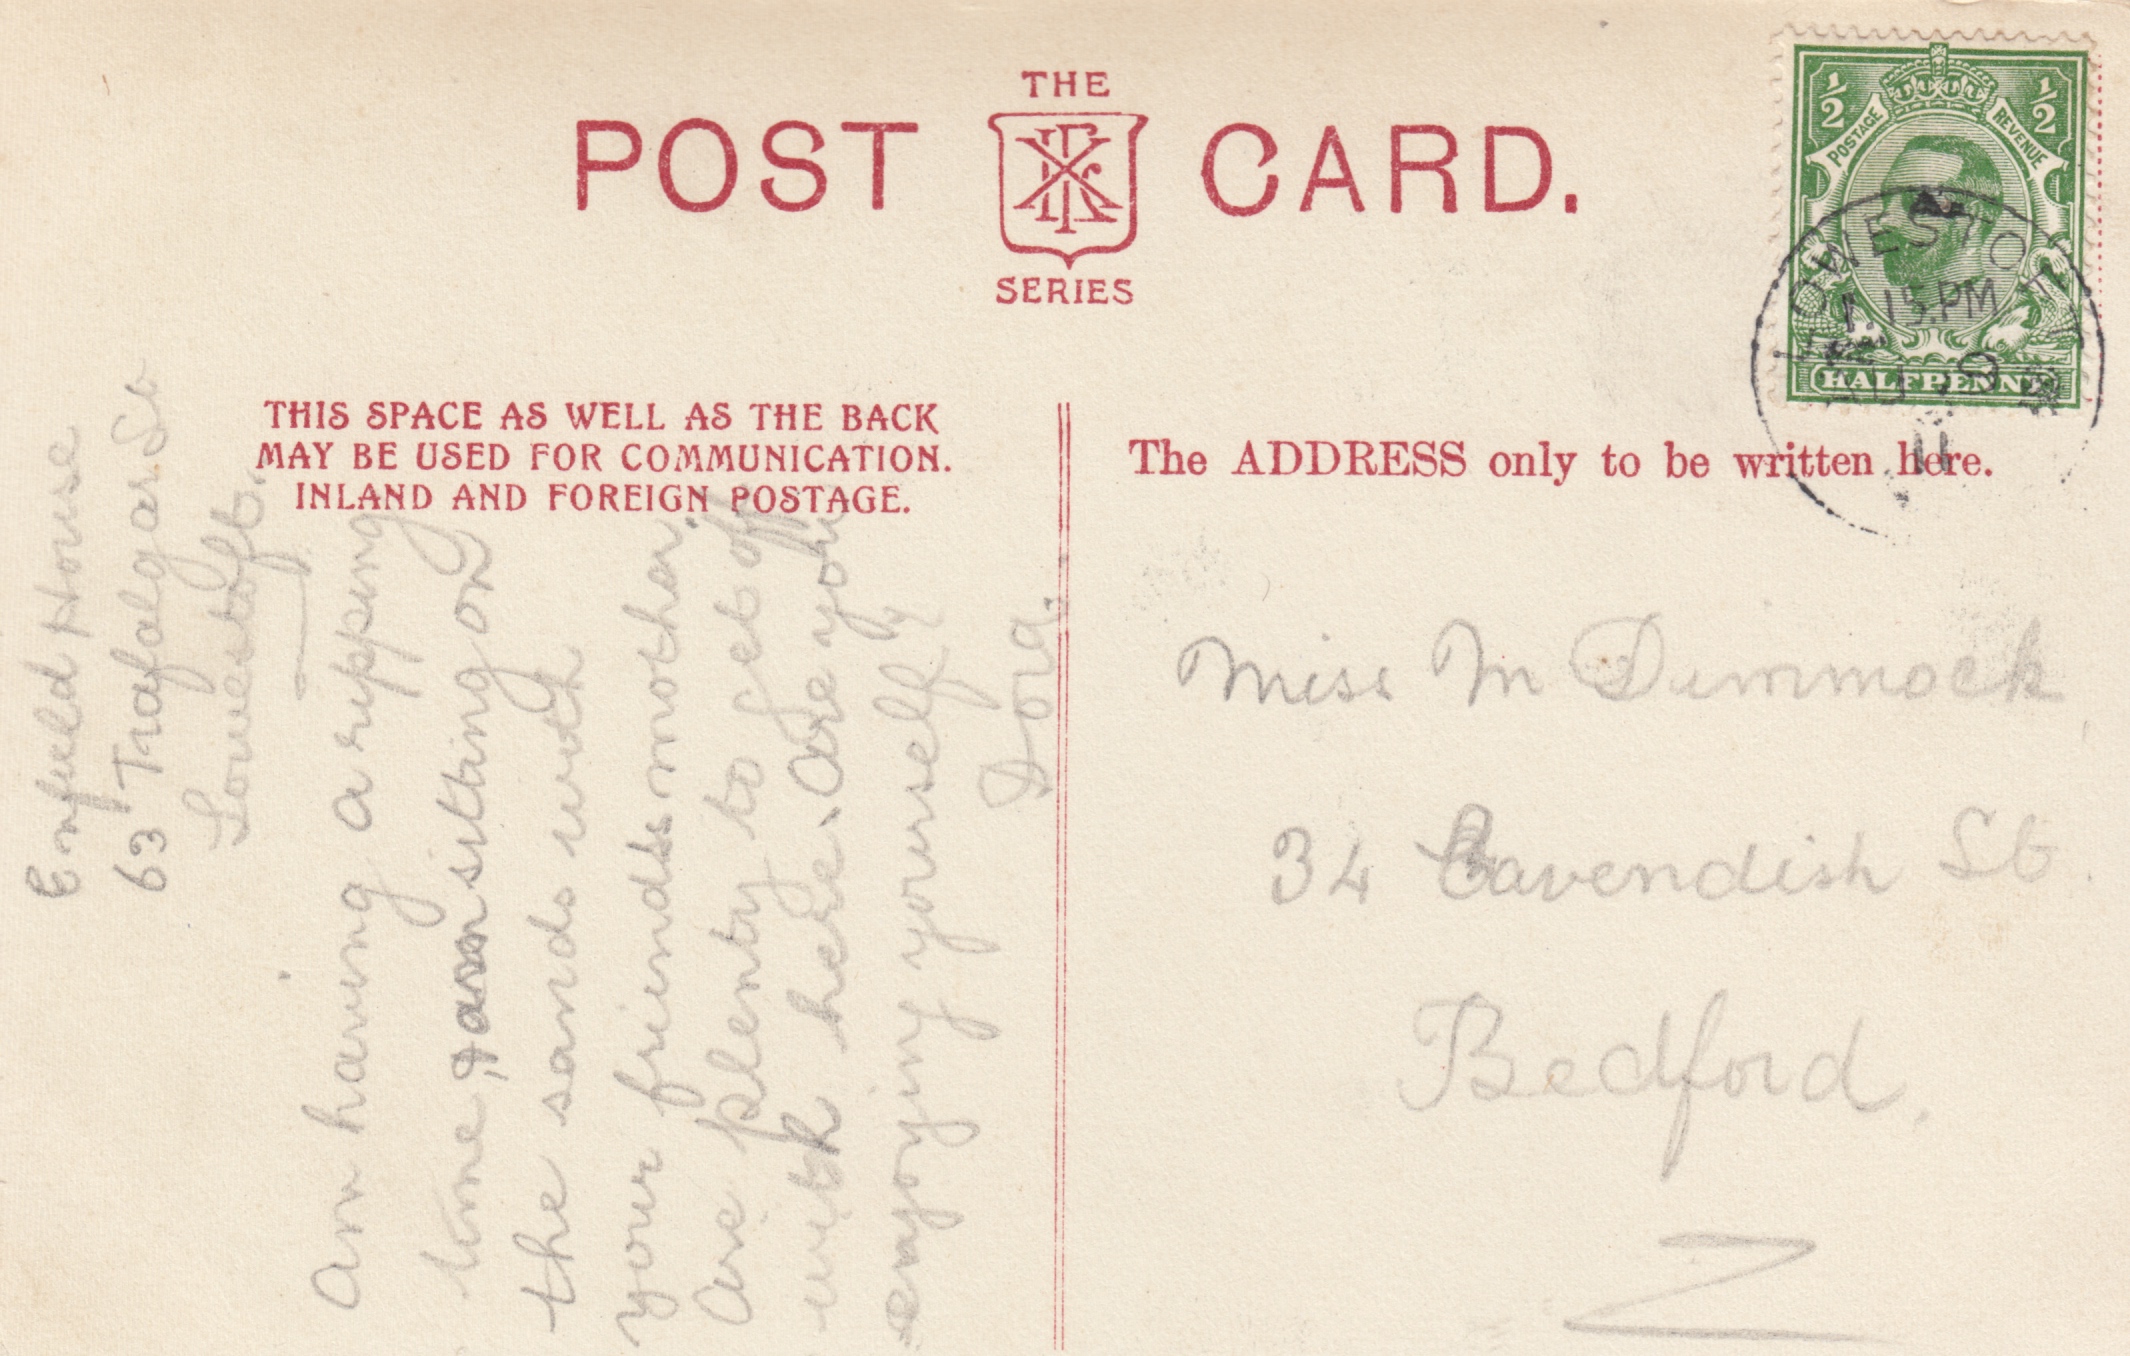 THE
POST CARD.
SERIES
THIS SPACE AS WELL AS THE BACK
MAY BE USED FOR COMMUNICATION.
INLAND AND FOREIGN POSTAGE.
The ADDRESS only to be written here.
½ ½
POSTAGE REVENUE
HALFPENNY
LOWESTOFT
1.15.PM
AU 9
11
Enfield House
63 Trafalgar St
Lowestoft.
Am having a ripping
time, am sitting on
the sands with
your friends mother.
Are plenty to get off
with here. Are you
enjoying yourself
Dora.
Miss M Dimmock
34 Cavendish St.
Bedford.